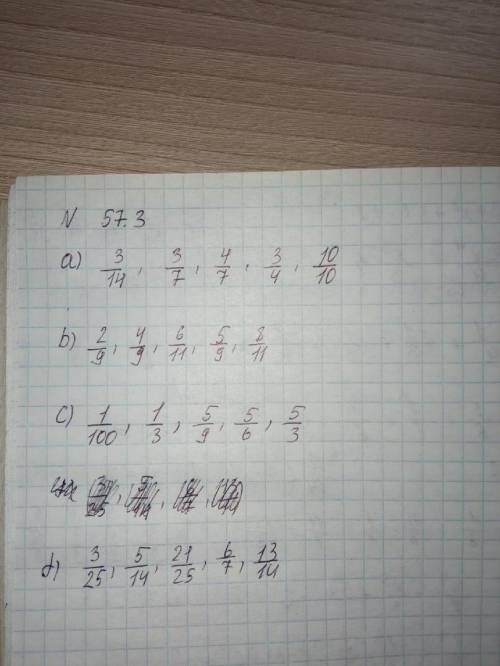 N 57.3
a) 3/14, 3/7, 4/7, 3/4, 10/10
b) 2/9, 4/9, 6/11, 5/9, 8/11
c) 1/100, 1/3, 5/9, 5/6, 5/3
d) 3/25, 5/14, 21/25, 6/7, 13/14